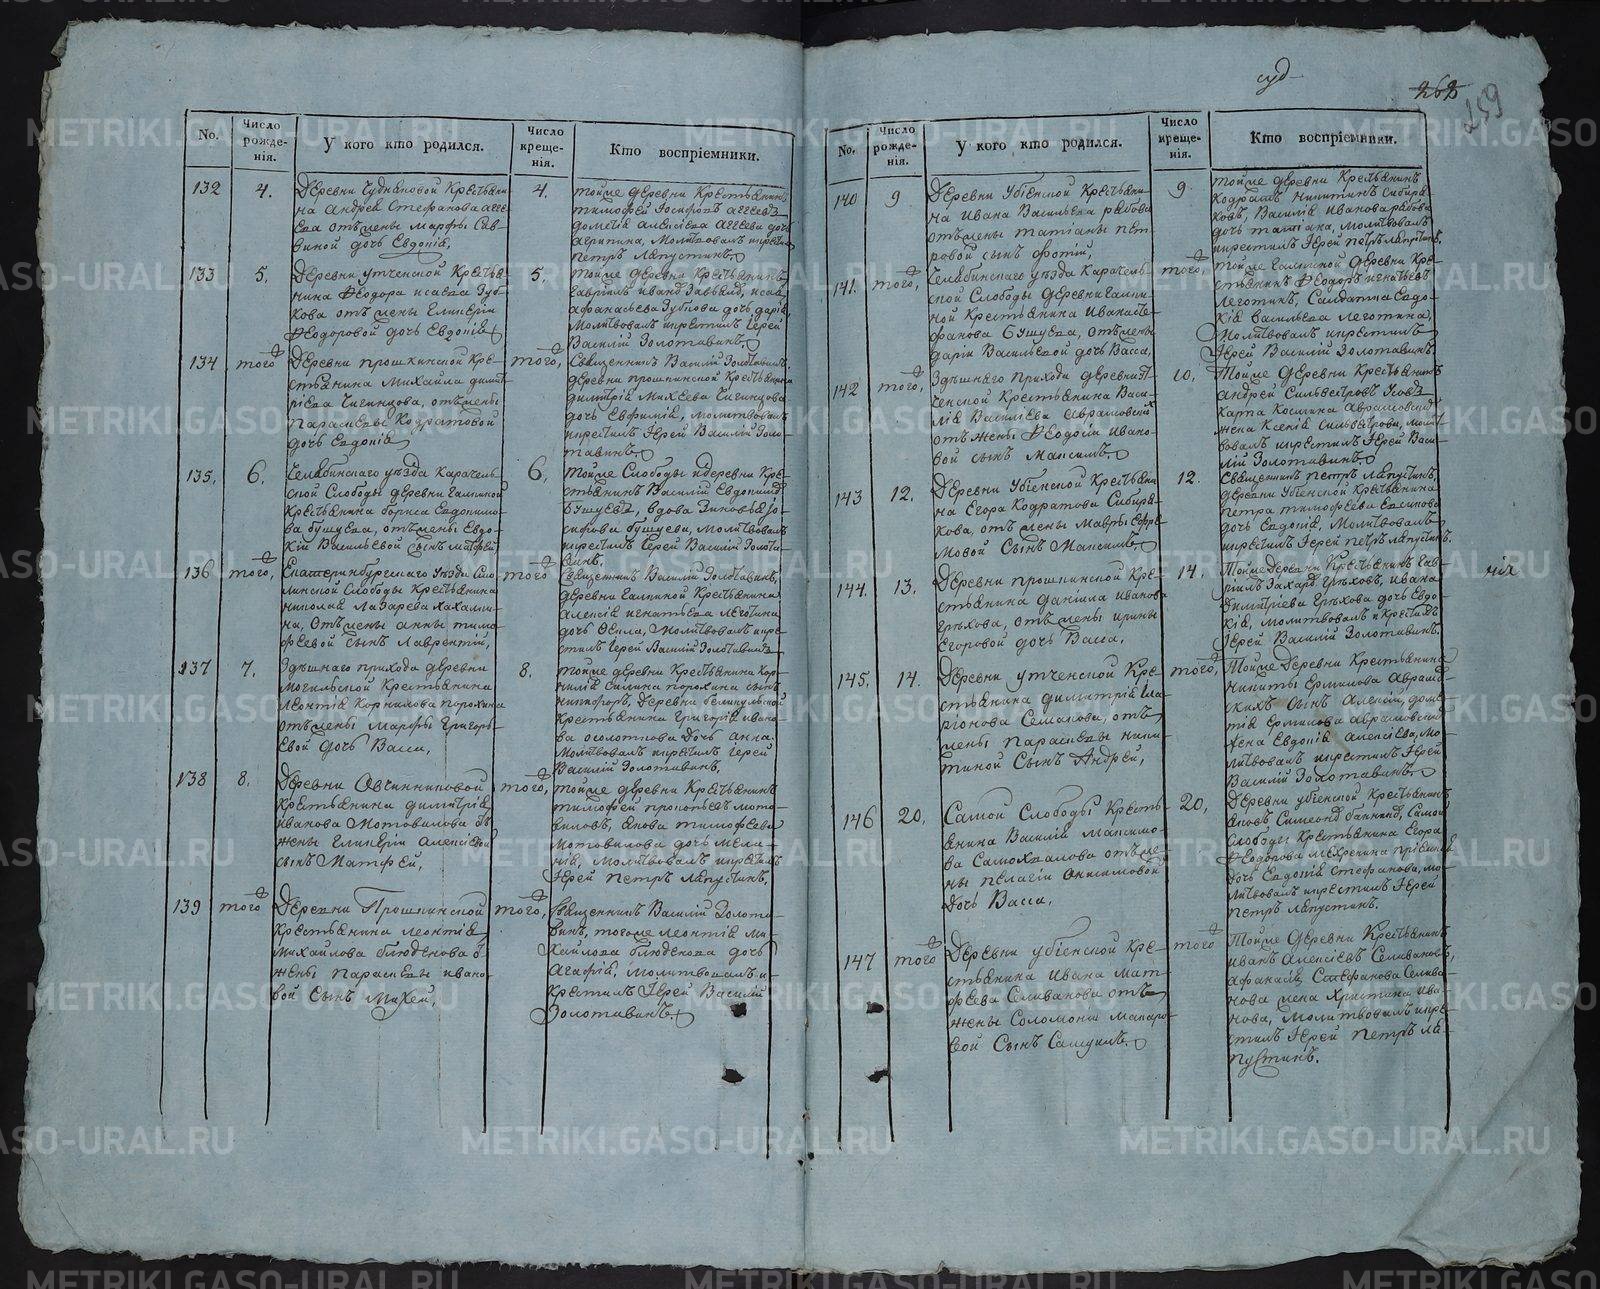 суд
262
259
No.
Число рожде-нія.
У кого кто родился.
Число креще-нія.
Кто воспріемники.
132
4.
Деревни Чудиновой Крестьяни
на Андрея Стефанова Агее
ева отъ жены Марфы Сав-
виной дочь Евдокія,
4.
тойже деревни Крестьянинъ
тимофей Іосифовъ Агеевъ
дометія алексіева Агеева дочь
агрипина, Молитвовалъ икрестилъ
петръ Ляпустинъ.
133
5.
Деревни утченской Крестья-
нина Феодора исаева Зуб-
кова отъ жены Гликеріи
Феодоровой дочь Евдокія
5.
тойже деревни Крестьянинъ
Гавріилъ иванъ
афанасьева Зубкова дочь дарія
Молитвовалъ икрестилъ Іерей
Василій Золотавинъ.
134
того
Деревни прошкинской Кре-
стьянина Михаила димит
ріева Чигинцова, отъ жены
Параскевы Кодратовой
дочь Евдокія
того,
Священникъ Василій Золотавинъ,
деревни прошкинской Крестьянина
димитрія Михеева Чигинцова
дочь Евфимія, молитвовалъ
икрестилъ Іерей Василій Золо-
тавинъ.
135.
6.
Челябинскаго уезда Карачель
ской Слободы деревни Галкиной
Крестьянина бориса Евдокимо-
ва бушуева, отъ жены Евдо-
кіи Васильевой сынъ матфей
6.
тойже Слободы идеревни Кре-
стьянинъ Василій Евдокимовъ
бушуевъ, вдова Зиновья Іо-
сифова бушуева, Молитвовалъ
икрестилъ Іерей Василій Золота-
винъ.
136
того,
Екатеринбургскаго уезда
Слободы Крестьянина
николая Лазарева
отъ жены анны тимо-
феевой сынъ Лаврентій,
того
Священникъ Василій Золотавинъ,
деревни Галкиной Крестьянина
Алексія игнатьева Леготина
дочь Фекла, Молитвовалъ икре-
стилъ Іерей Василій Золотавинъ
137
7.
Здешнаго прихода деревни
Могильской Крестьянина
Леонтія Корнилова порохина
отъ жены Марфы Григорь
евой дочь Васса,
8.
тойже деревни Крестьянина Кор-
нилія Силина порохина сынъ
никифоръ, деревни
Крестьянина Григорія ивано-
ва дочь анна.
Молитвовалъ икрестилъ Іерей
Василій Золотавинъ.
138
8.
Деревни Овчинниковой
Крестьянина димитрія
иванова Мотовилова отъ
жены Гликеріи Алексіевой
сынъ Матфей,
того,
тойже деревни Крестьянинъ
тимофей прокопьевъ мото-
виловъ, Якова тимофеева
мотовилова дочь мела-
нія, молитвовалъ икрестилъ
Іерей петръ Ляпустинъ,
139
того
Деревни Прошкинской
Крестьянина леонтія
михайлова блюденова отъ
жены Параскевы ивано-
вой сынъ михей,
того,
Священникъ Василій Золота-
винъ, тогоже леонтія ми-
хайлова блюденова дочь
Агафія, молитвовалъ и-
крестилъ Іерей Василій
Золотавинъ
No.
Число рожде-нія.
У кого кто родился.
Число креще-нія.
Кто воспріемники.
140
9
Деревни Убіенской Крестьяни-
на ивана Васильева рябова
отъ жены татіаны пет
ровой сынъ фотій,
9.
тойже деревни Крестьянинъ
Кодратъ никитинъ сибиря
ковъ, Василія иванова рябова
дочь татіана, молитвовалъ
икрестилъ Іерей петръ Ляпустинъ.
141.
того,
Челябинскаго уезда Карачель-
ской Слободы деревни Галки-
ной Крестьянина Ивана Сте-
фанова бушуева, отъ жены
дарьи Васильевой дочь Васса,
того,
тойже Галкиной деревни Кре-
стьянинъ Феодоръ игнатьевъ
леготинъ, Салдатка Евдо-
кія васильева леготина,
Молитвовалъ икрестилъ
Іерей Василій Золотавинъ.
142
того,
Здешнаго прихода деревни Ут-
ченской Крестьянина Васи-
лія Василіева аврамовскихъ
отъ жены Феодосіи ивано-
вой сынъ Максимъ.
10,
тойже деревни Крестьянинъ
Андрей Сильвестровъ
Карпа Космина аврамовскихъ
жена Ксенія Сильвестрова, молит
вовалъ икрестилъ Іерей Васи-
лій Золотавинъ.
143
12.
Деревни Убіенской Крестьяни
на Егора Кодратова Сибиря-
кова, отъ жены мавры Ефре-
мовой Сынъ Максимъ.
12.
Священникъ петръ Ляпустинъ,
деревни Убіенской Крестьянина
петра тимофеева
дочь Евдокія, Молитвовалъ
икрестилъ Іерей петръ Ляпустинъ.
144.
13.
Деревни прошкинской Кре-
стьянина даніила иванова
Грехова, отъ жены ирины
Егоровой дочь Васса.
14.
тойже деревни Крестьянинъ Гав-
ріилъ Захаровъ Греховъ, ивана
димитріева Грехова дочь Евдо-
кія, молитвовалъ и крестилъ
Іерей Василій Золотавинъ.
145.
14.
Деревни утченской Кре-
стьянина димитрія Ила-
ріонова Семакова, отъ
жены параскевы ники-
тиной Сынъ Андрей,
того,
тойже деревни Крестьянина
никиты Ермилова Аврамов-
скихъ Сынъ Алексій, доме-
тія Ермилова аврамовскихъ
жена Евдокія Алексіева, мо-
литвовалъ икрестилъ Іерей
Василій Золотавинъ.
146
20.
Самой Слободы Кресть-
янина Василія максимо-
ва Самохвалова отъ же-
ны пелагіи онисимовой
дочь Васса,
20,
Деревни убіенской Крестьянинъ
Яковъ Симеоновъ
Слободы Крестьянина Егора
Феодорова
дочь Евдокія Стефанова, мо-
литвовалъ икрестилъ Іерей
петръ Ляпустинъ.
147
того
Деревни убіенской Кре-
стьянина ивана мат-
феева Селиванова отъ
жены Соломоніи макаро-
вой Сынъ Самуилъ.
того
тойже деревни Крестьянинъ
иванъ Алексіевъ Селивановъ,
афанасія Стефанова Селива-
нова жена христина ива-
нова, молитвовалъ икре-
стилъ Іерей петръ Ля-
пустинъ.
METRIKI.GASO-URAL.RU